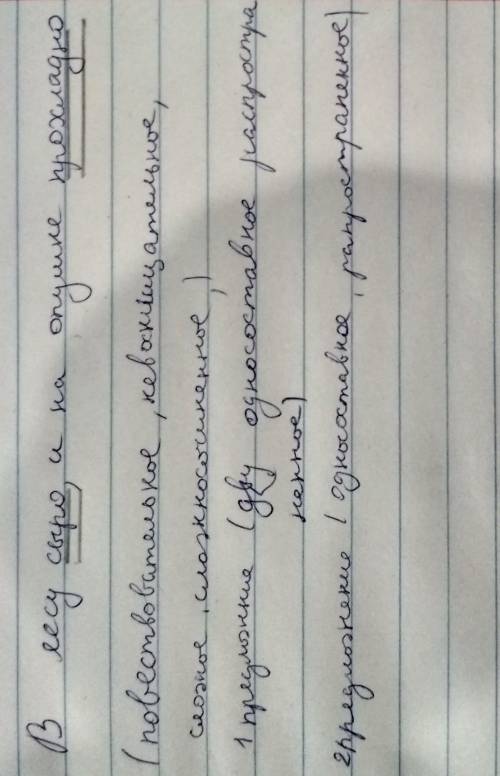 В лесу сыро, и на опушке прохладно
(повествовательное, невосклицательное,
сложное, сложносочиненное,)
1 предложние (дву односоставное распростра
ненное)
2) предложение (односоставное, рапространенное)